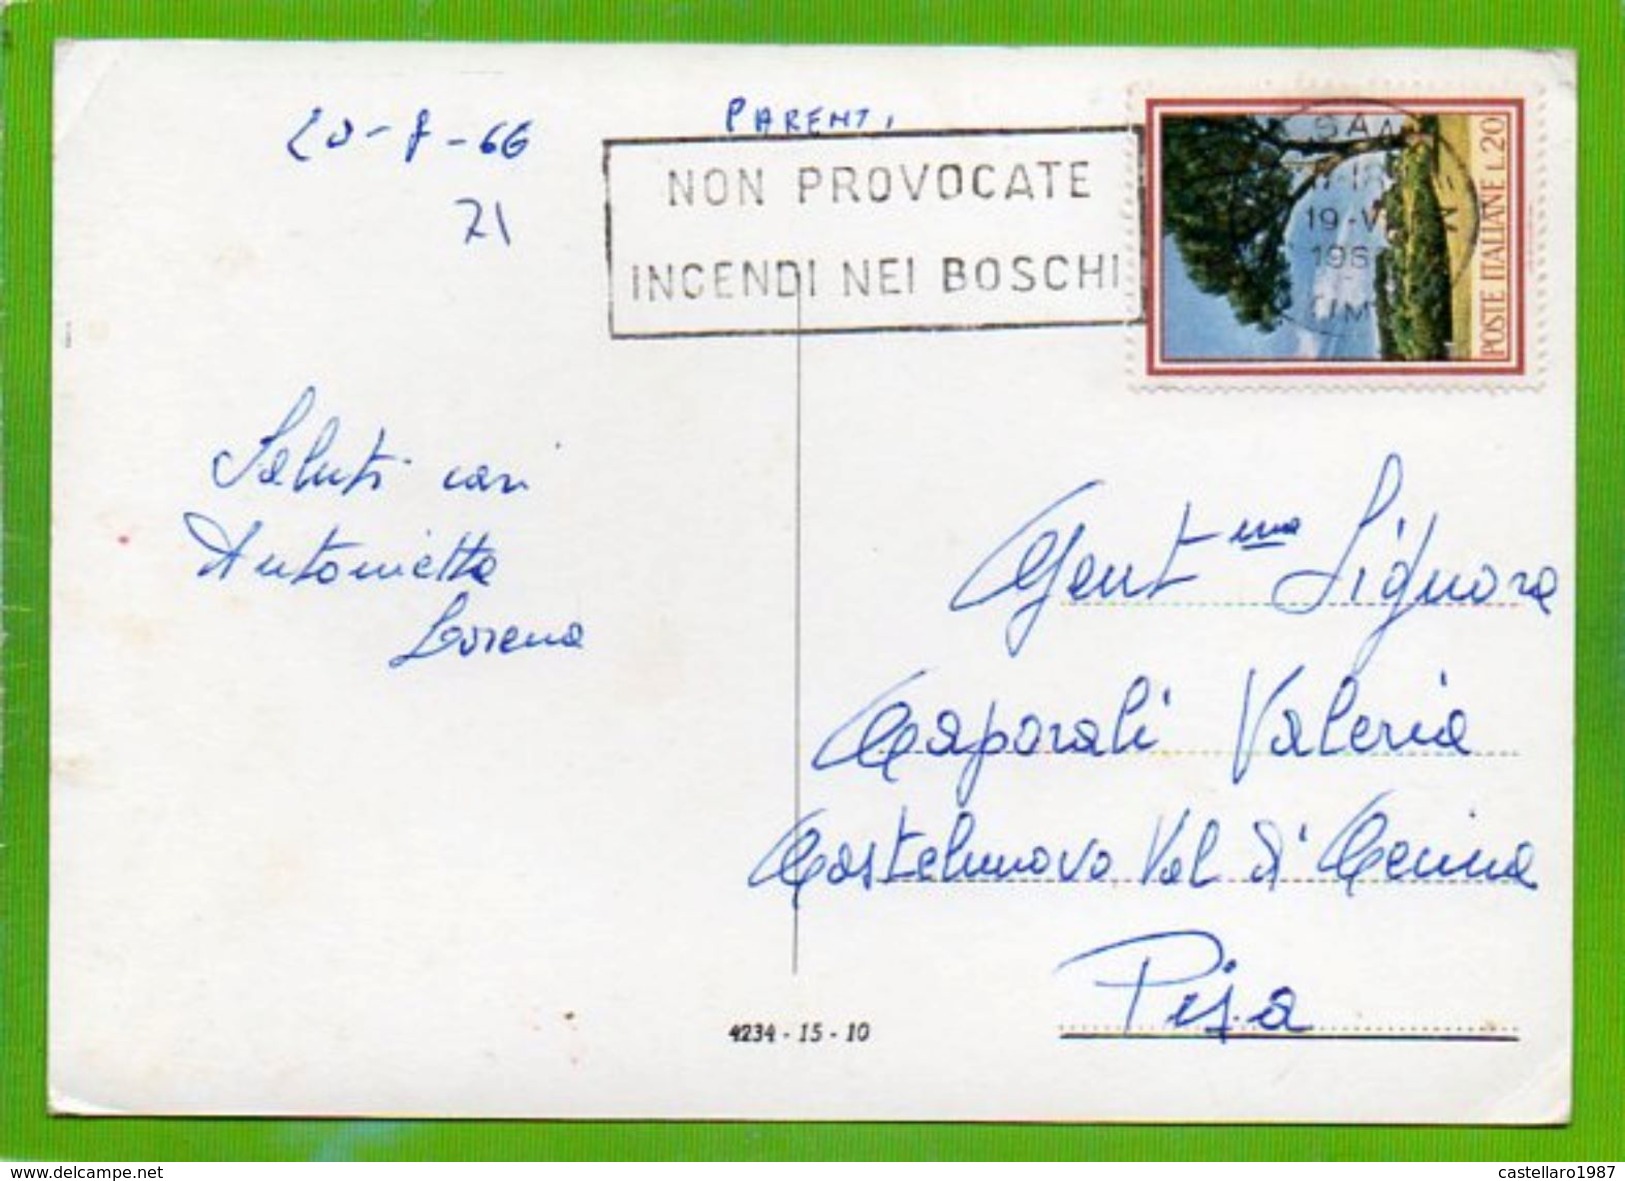 20-8-66
21
PARENTI
NON PROVOCATE
INCENDI NEI BOSCHI
POSTE ITALIANE L.20
19-V
196
Saluti cari
Antonietta
Lorena
Gent.ma Signora
Caporali Valeria
Castelnuovo Val di Cecina
Pisa
4234 - 15 - 10
www.delcampe.net
castellaro1987